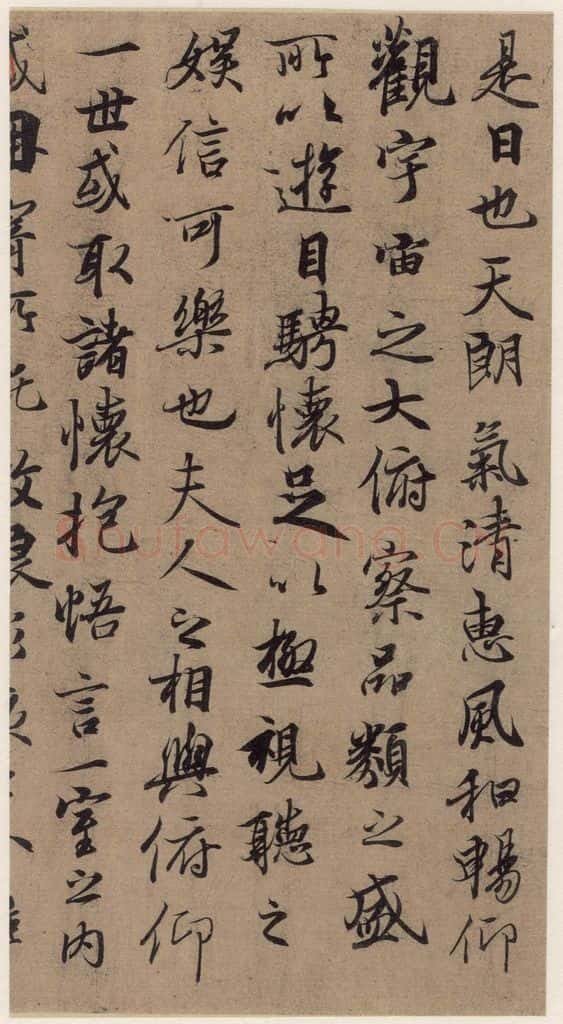 是日也天朗氣清惠風和暢仰
觀宇宙之大俯察品類之盛
所以遊目騁懷足以極視聽之
娛信可樂也夫人之相與俯仰
一世或取諸懷抱悟言一室之內
或因寄所託放浪形骸之外雖
shufawang.cn